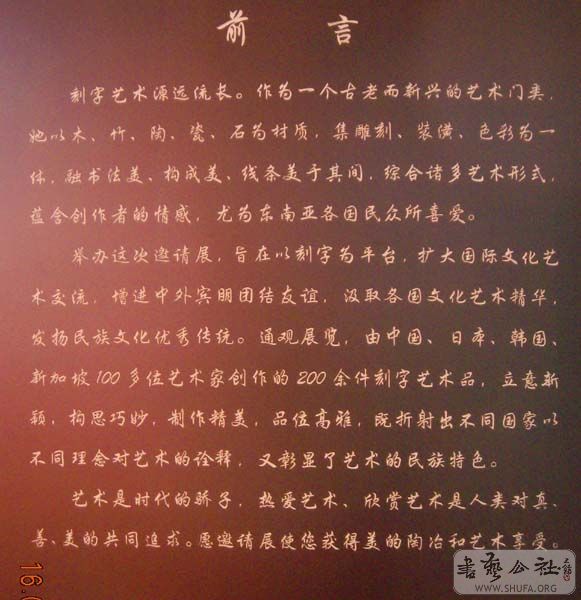 前言
刻字艺术源远流长。作为一个古老而新兴的艺术门类，
她以木、竹、陶、瓷、石为材质，集雕刻、装潢、色彩为一
体，融书法美、构成美、线条美于其间，综合诸多艺术形式，
蕴含创作者的情感，尤为东南亚各国民众所喜爱。
举办这次邀请展，旨在以刻字为平台，扩大国际文化艺
术交流，增进中外宾朋团结友谊，汲取各国文化艺术精华，
发扬民族文化优秀传统。通观展览，由中国、日本、韩国、
新加坡100多位艺术家创作的200余件刻字艺术品，立意新
颖，构思巧妙，制作精美，品位高雅，既折射出不同国家以
不同理念对艺术的诠释，又彰显了艺术的民族特色。
艺术是时代的骄子，热爱艺术、欣赏艺术是人类对真、
善、美的共同追求。愿邀请展使您获得美的陶冶和艺术享受。
书艺公社
WWW.SHUFA.ORG